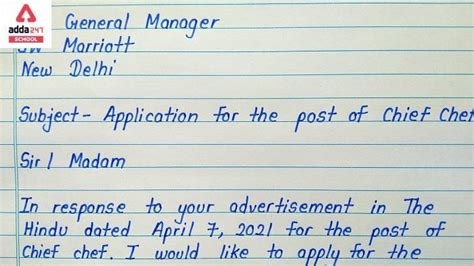 adda247
SCHOOL
General Manager
JW Marriott
New Delhi
Subject- Application for the post of Chief Chef
Sir/ Madam
In response to your advertisement in The
Hindu dated April 7, 2021 for the post of
Chief chef. I would like to apply for the